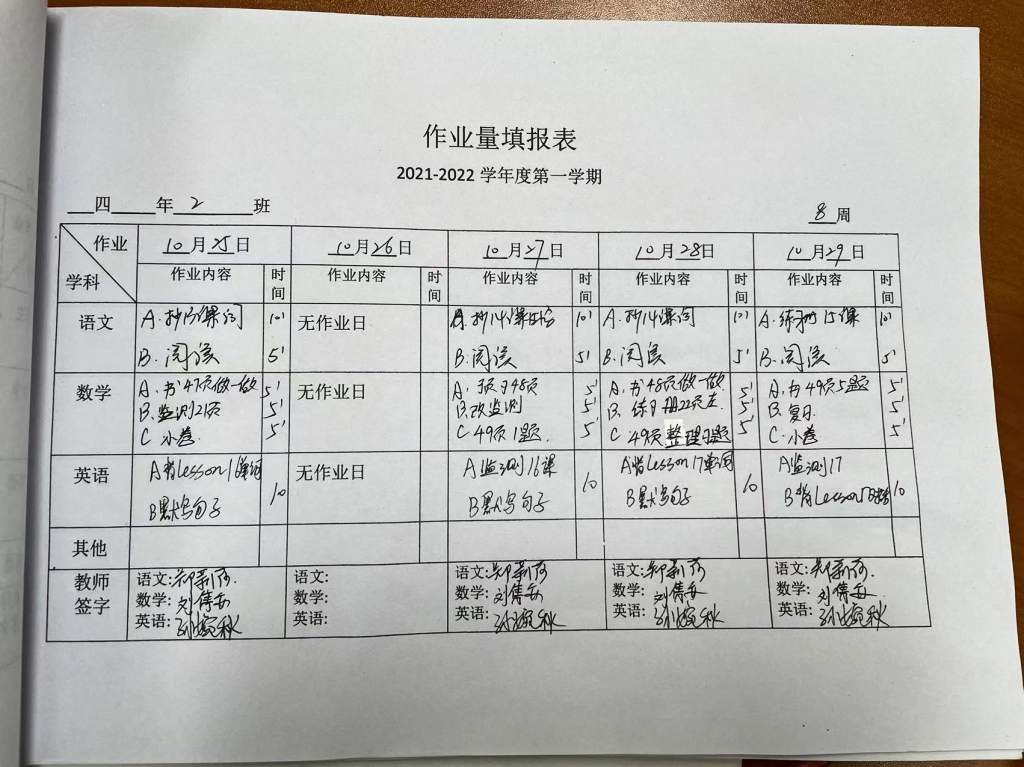 作业量填报表
2021-2022 学年度第一学期
四 年 2 班
8 周
作业 10月25日 10月26日 10月27日 10月28日 10月29日
学科 作业内容 时间 作业内容 时间 作业内容 时间 作业内容 时间 作业内容 时间
语文 A.抄13课词 10' 无作业日 A.抄14课 10' A.抄14课词 10' A.练习册15课 10'
B.阅读 5' B.阅读 5' B.阅读 5' B.阅读 5'
数学 A.书47页做一做 5' 无作业日 A.报习48页 5' A.书48页做一做 5' A.书49页5题 5'
B.监测21页 5' B.改监测 5' B.练习册22页左 5' B.复习 5'
C 小卷. 5' C 49页1题. 5' C 49页整理习题 5' C.小卷 5'
英语 A背Lesson 单词 10 无作业日 A监测16课 10 A背Lesson17单词 10 A监测17 10
B默写句子 B默写句子 B默写句子 B背Lesson
其他
教师签字 语文:郑新莎. 语文: 语文:郑新莎 语文:郑新莎 语文:郑新莎.
数学:刘倩 数学: 数学:刘倩 数学:刘倩 数学:刘倩
英语:孙婉秋 英语: 英语:孙婉秋 英语:孙婉秋 英语:孙婉秋